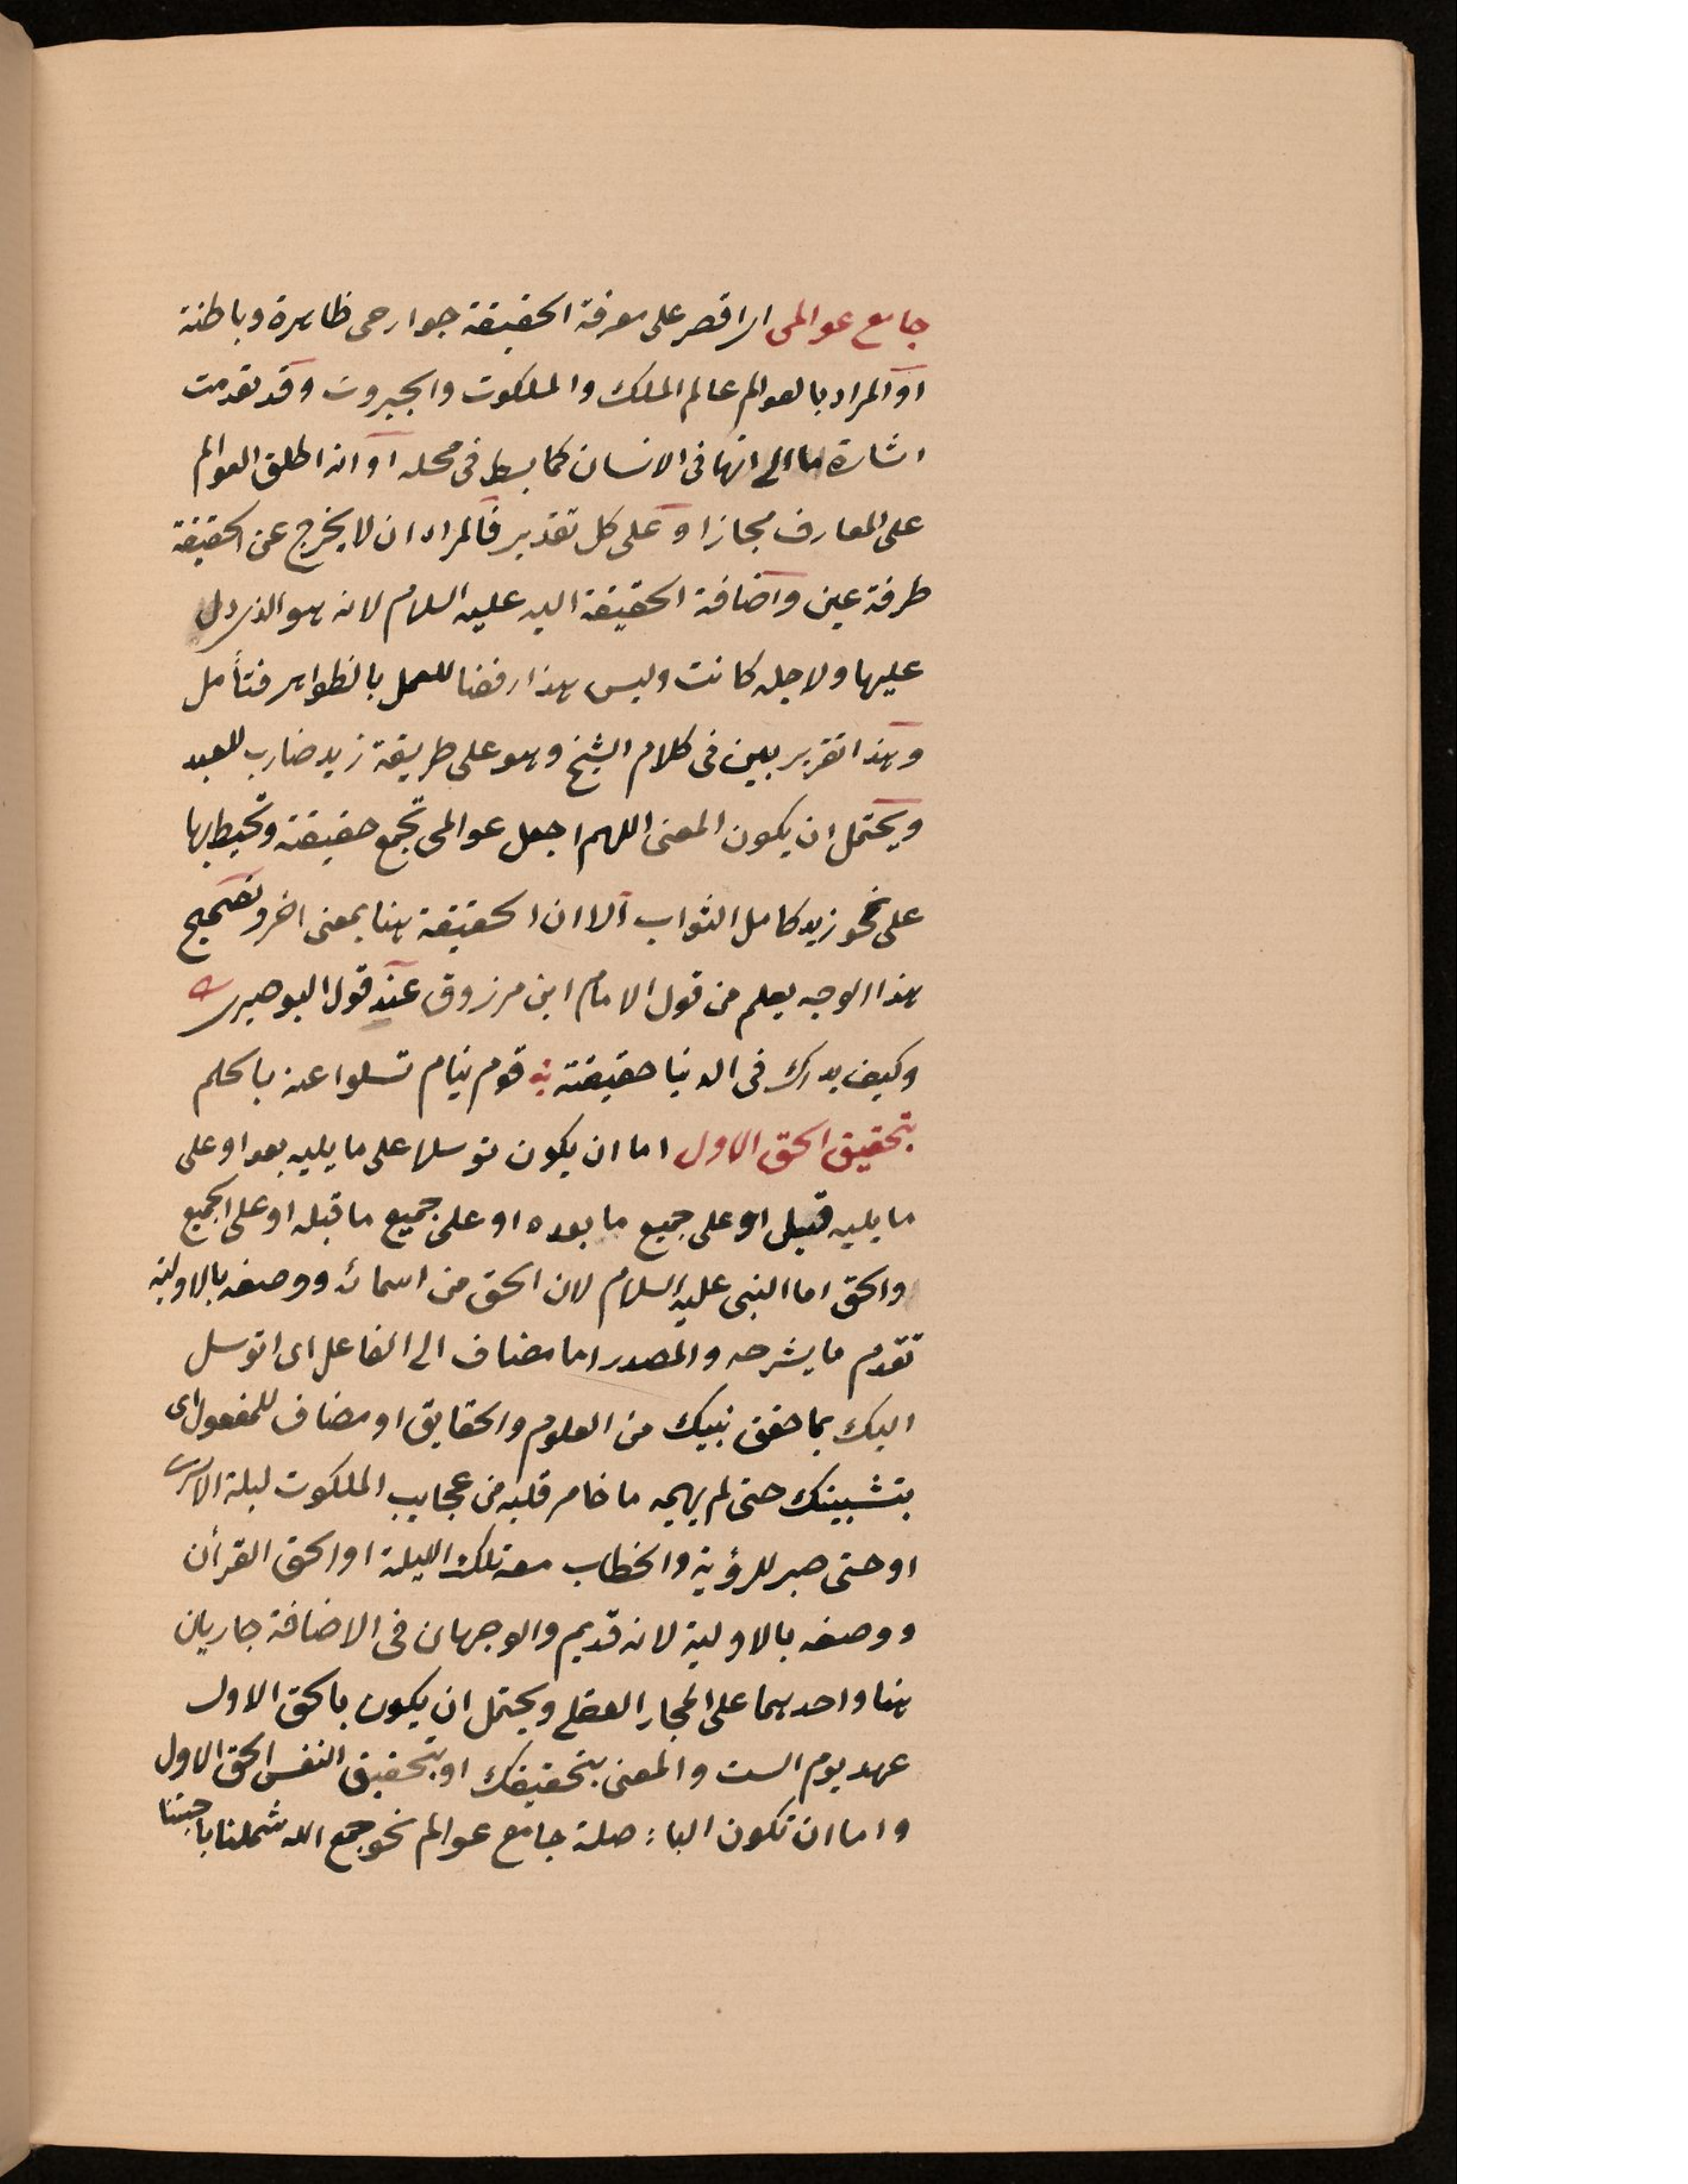 جامع عوالمى اى اقصر على معرفة الحقيقة جوارحى ظاهرة وباطنة
او المراد بالعوالم عالم الملك والملكوت والجبروت وقد تقدمت
اشارة ما الى انها فى الانسان كما بسط فى محله او انه اطلق العوالم
على المعارف مجازا وعلى كل تقدير فالمراد ان لا يخرج عن الحقيقة
طرفة عين واضافة الحقيقة اليه عليه السلام لانه هو الذى دل
عليها ولاجله كانت وليس هذا رفضا للعمل بالظواهر فتأمل
وهذا تقرير بين فى كلام الشيخ وهو على طريقة زيد ضارب للعبد
ويحتمل ان يكون المعنى اللهم اجعل عوالمى تجمع حقيقته وتحيط بها
على نحو زيد كامل الثواب الا ان الحقيقة هنا بمعنى اخر وتصحيح
هذا الوجه يعلم من قول الامام ابن مرزوق عند قول البوصيرى
وكيف يدرك فى الدنيا حقيقته قوم نيام تسلوا عنه بالحلم
بتحقيق الحق الاول اما ان يكون توسلها على ما يليه بعد او على
ما يليه قبل او على جميع ما بعده او على جميع ما قبله او على الجميع
والحق اما النبى عليه السلام لان الحق من اسمائه ووصفه بالاولية
تقدم ما يشرحه والمصدر اما مضاف الى الفاعل اى اتوسل
اليك بما حقق نبيك من العلوم والحقايق او مضاف للمفعول اى
بتثبيتك حتى لم يهمه ما خامر قلبه من عجايب الملكوت ليلة الاسرى
او حتى صبر للرؤية والخطاب معه تلك الليلة او الحق القرأن
ووصفه بالاولية لانه قديم والوجهان فى الاضافة جاريان
هنا واحدهما على المجاز العقلى ويحتمل ان يكون بالحق الاول
عهد يوم الست والمعنى بتحقيقك او بتحقيق النفس الحق الاول
واما ان تكون الباء صلة جامع عوالم نحو جمع الله شملنا باحبتنا